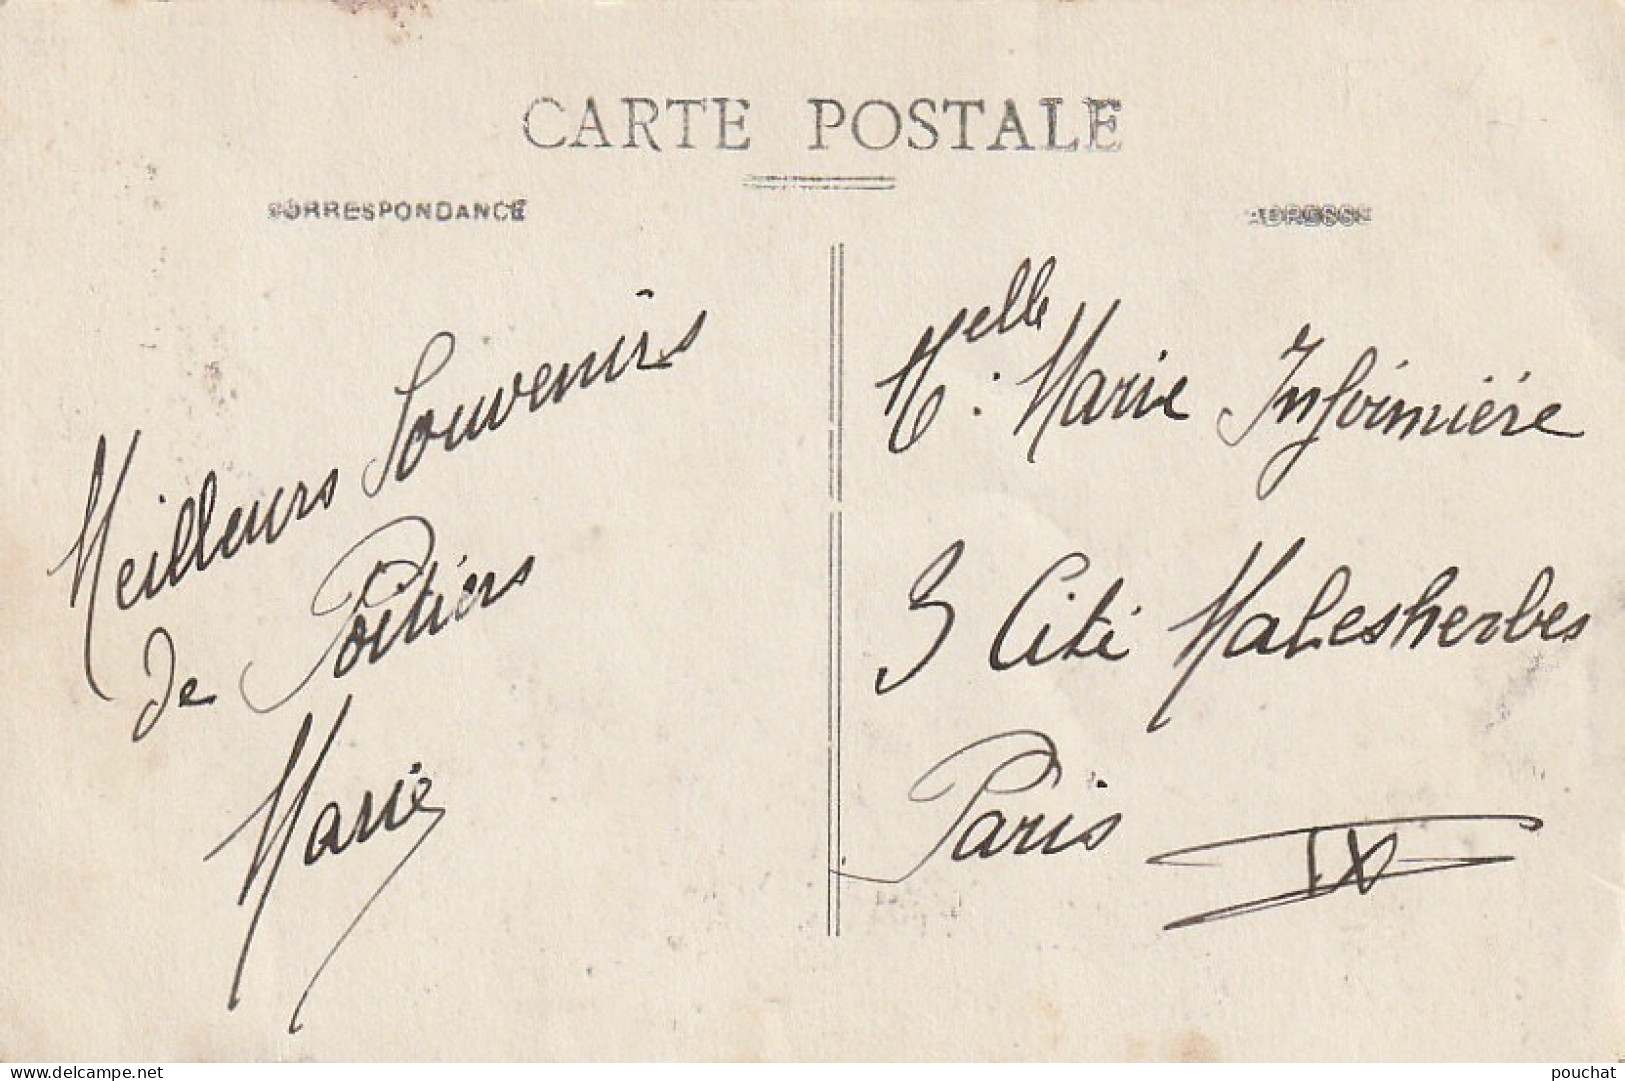 CARTE POSTALE
CORRESPONDANCE
ADRESSE
Meilleurs Souvenirs
de Poitiers
Marie
Melle. Marie Infirmière
3 Cité Malesherbes
Paris IX
www.delcampe.net
pouchat